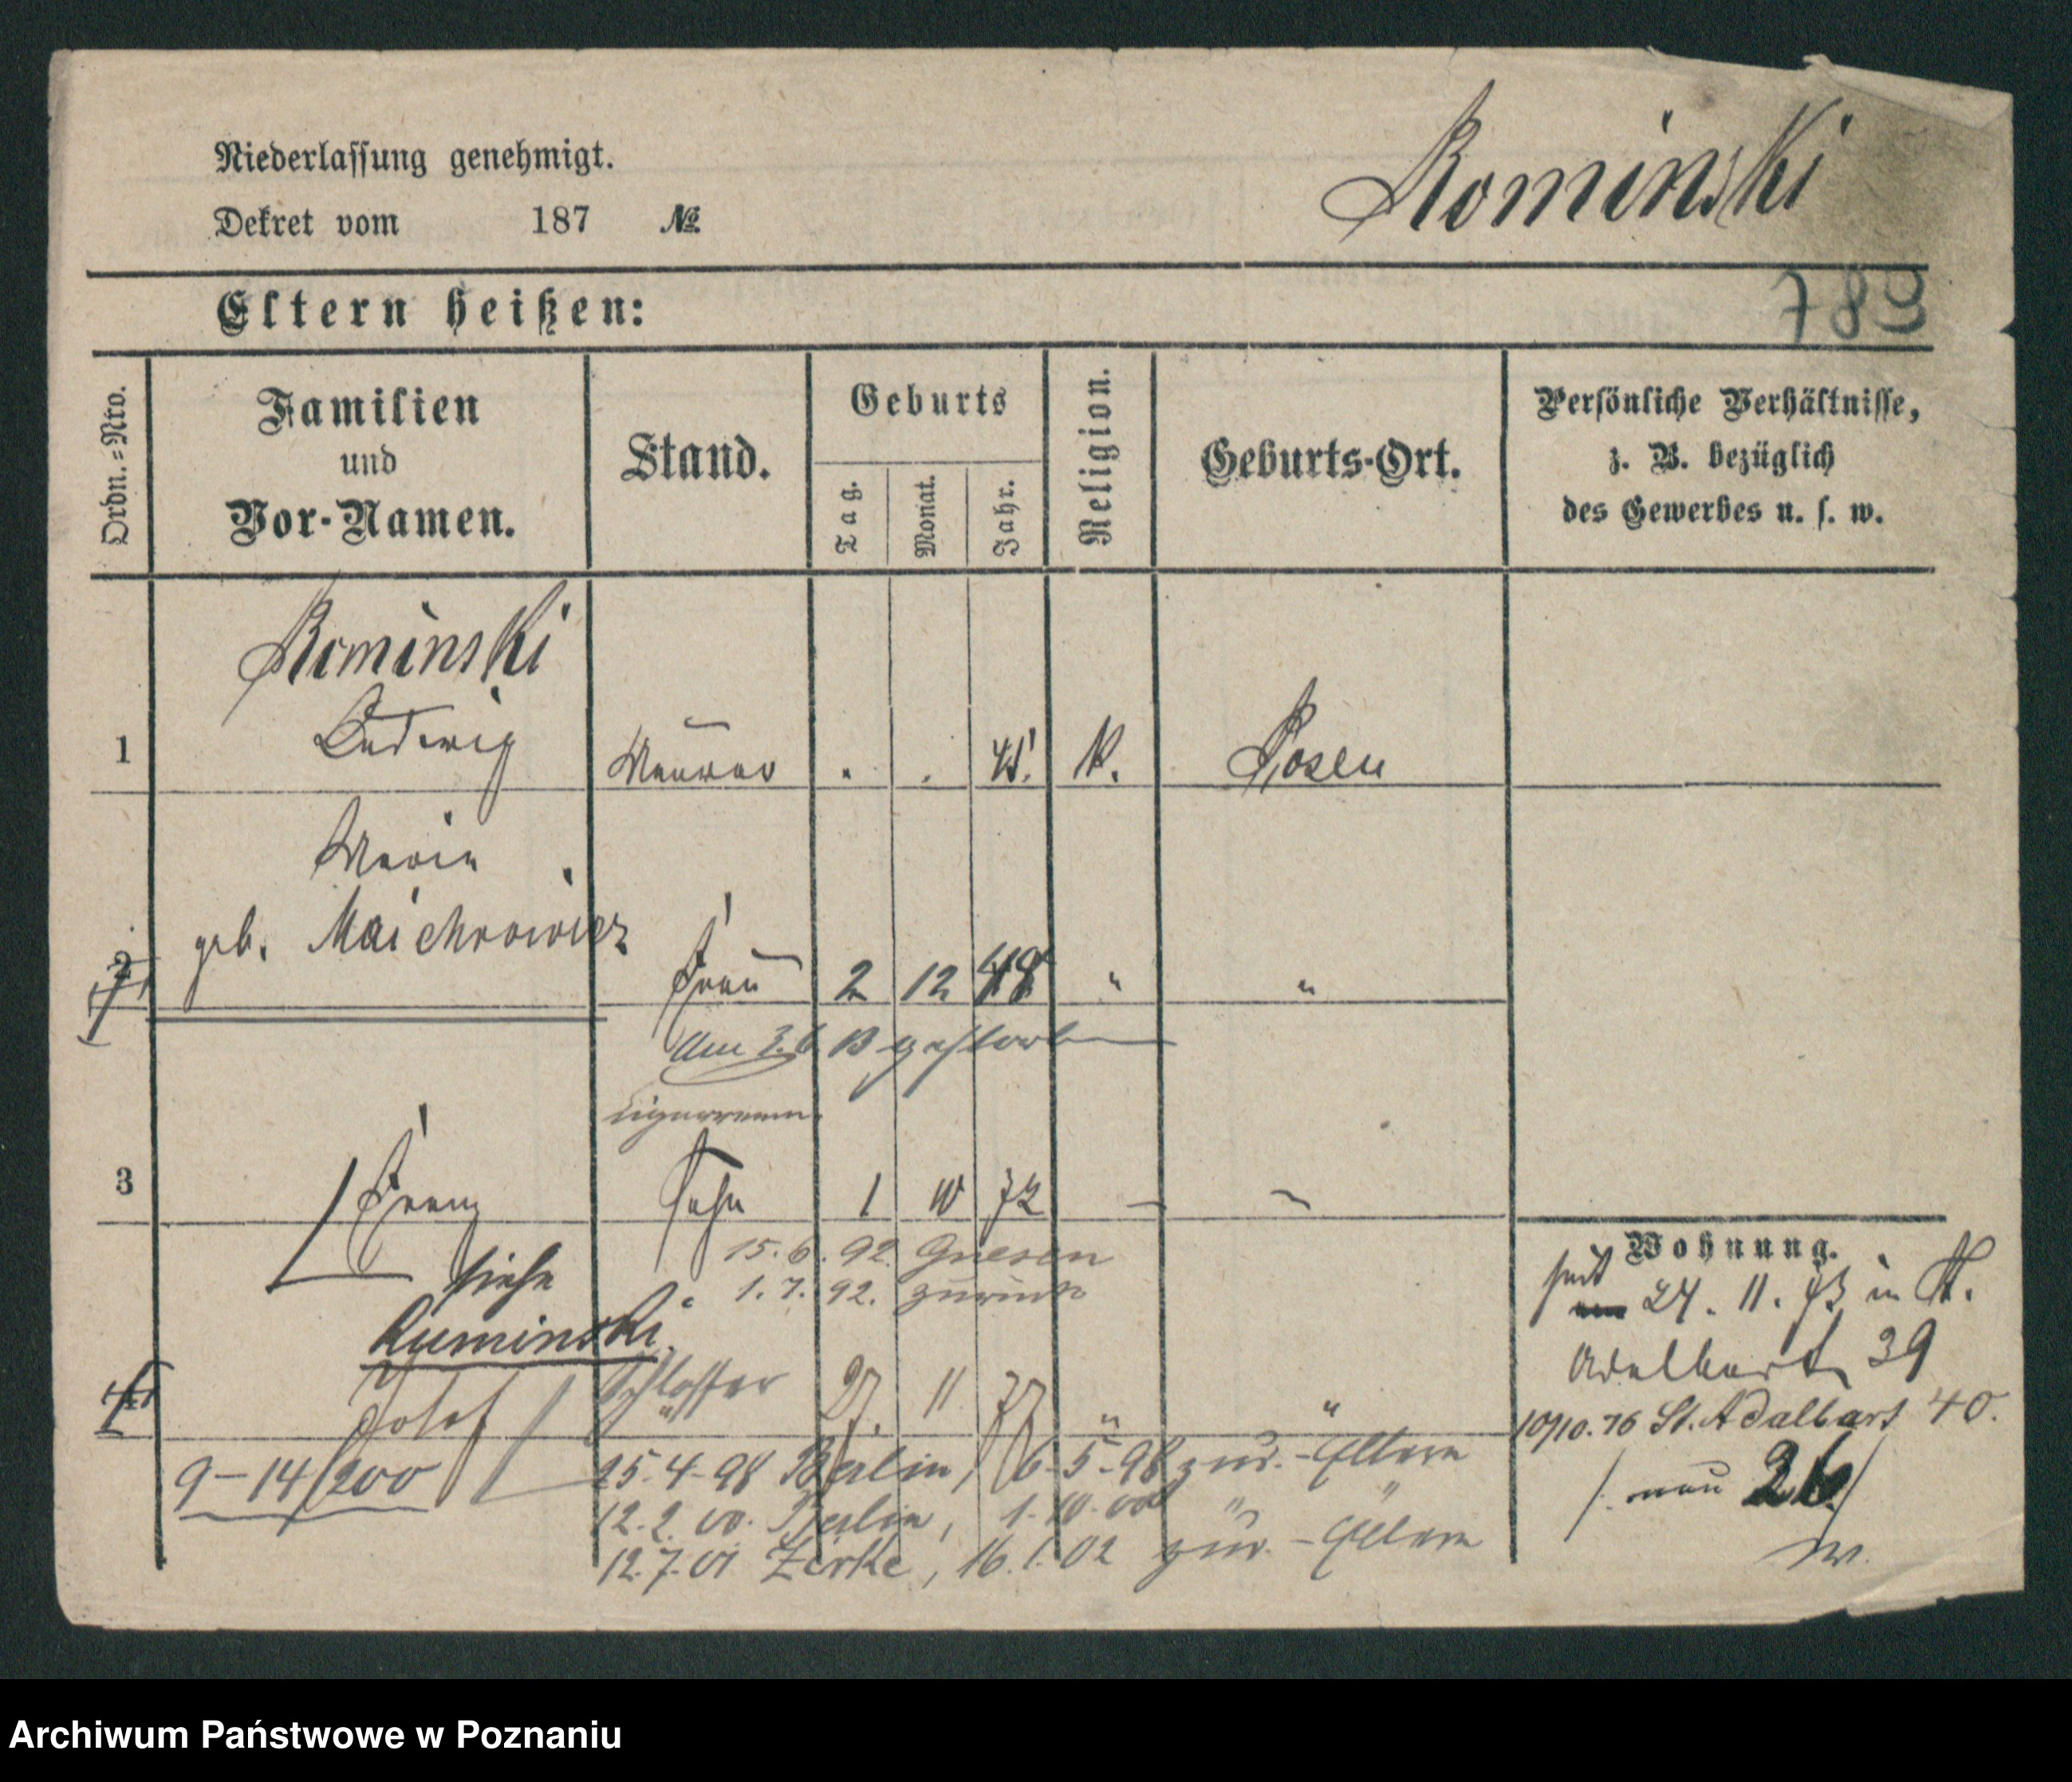 Niederlassung genehmigt.
Dekret vom 187 №
Rominski
789
Eltern heißen:
Ordn.=Nro.
Familien und Vor-Namen.
Stand.
Geburts
Tag.
Monat.
Jahr.
Religion.
Geburts-Ort.
Persönliche Verhältnisse,
z. B. bezüglich
des Gewerbes u. s. w.
Rominski
1 Ludwig Maurer . . 45. K. Posen
Marie
geb. Maichrowicz
2 Frau 2 12 48 " "
Am 3.6 gestorben
Cigarrenm.
3 Franz Sohn 1 10 72
15.6.92. Gnesen
1.7.92. zurück
siehe
Ruminski
4 Josef Schlosser 27. 11 77 " "
9–14/200
25.4.98 Berlin, 6.5.98 zur. - Eltern
12.2.00. Berlin, 1.10.00 " "
12.7.01 Zirke, 16.1.02 zur. - Eltern
Wohnung.
seit 24. 11. 73 in St.
Adelbert 39
10/10.76 St. Adalbert 40.
/. neu 26 /